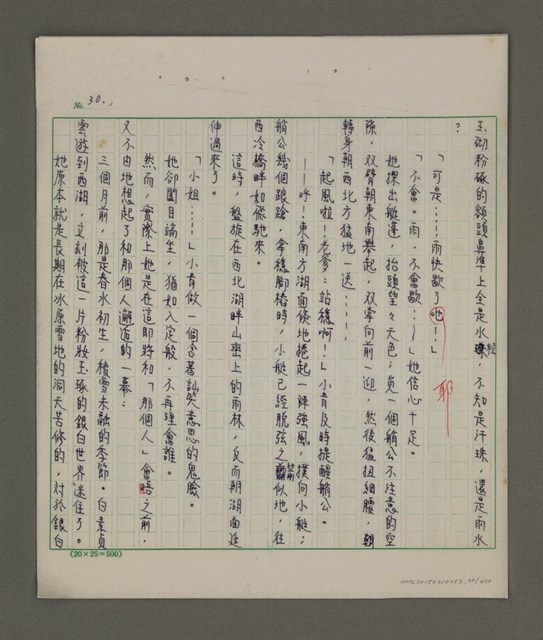 No. 30.
玉砌粉琢的額頭鼻準上全是水珠,不知是汗珠,還是雨水
?
「可是……雨快歇了吔!」
耶
「不會。雨,不會歇……!」她信心十足。
她探出艇邊,抬頭望望天色;覓一個艄公不注意的空
隙,双臂朝東南舉起,双掌向前一迎,然後猛扭細腰,
轉身朝西北方猛地一送……
「起風啦!老爹:站穩啊!」小青及時提醒艄公。
——呼!東南方湖面倏地捲起一陣強風,撲向小艇;
艄公幾個踉蹌,拿穩腳樁時,小艇已經脫弦之箭似地,往
西冷橋畔如飛馳來。
這時,盤旋在西北湖畔山巒上的雨林,反而朝湖面延
伸過來了。
「小姐……!」小青做一個含著訕笑意思的鬼臉。
她卻閤目端坐,猶如入定般,不再理會誰。
然而,實際上她是在這即將和「那個人」會晤之前,
又不由地想起了和那個人邂逅的一幕:
三個月前,那是春水初生,積雪未融的季節。白素貞
雲遊到西湖,立刻被這一片粉妝玉琢的銀白世界迷住了。
她原本就是長期在冰原雪地的洞天苦修的,對於銀白
(20×25=500)